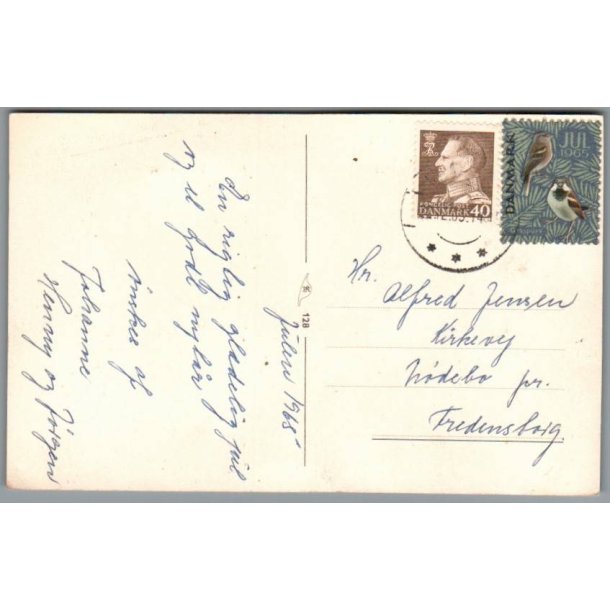 Julen 1965
En rigtig glædelig jul
og et godt nytår
ønskes af
Johanne
Henny og Jörgen
128
DANMARK 40
DANMARK
JUL
1965
Hr. Alfred Jensen
Kirkevej
Nödebo pr.
Fredensborg.